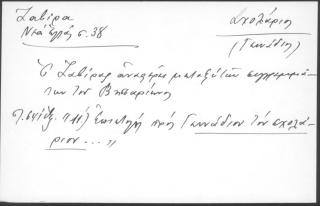 Ζαβίρα
Νέα Ἑλλάς σ. 38
Σχολάριος
(Γεννάδιος)
Ὁ Ζαβίρας ἀναφέρει μεταξὺ τῶν συγγραμμά-
των τοῦ Βησσαρίωνος
Ἐπιστολὴ πρὸς Γεννάδιον τὸν σχολά-
ριον... "